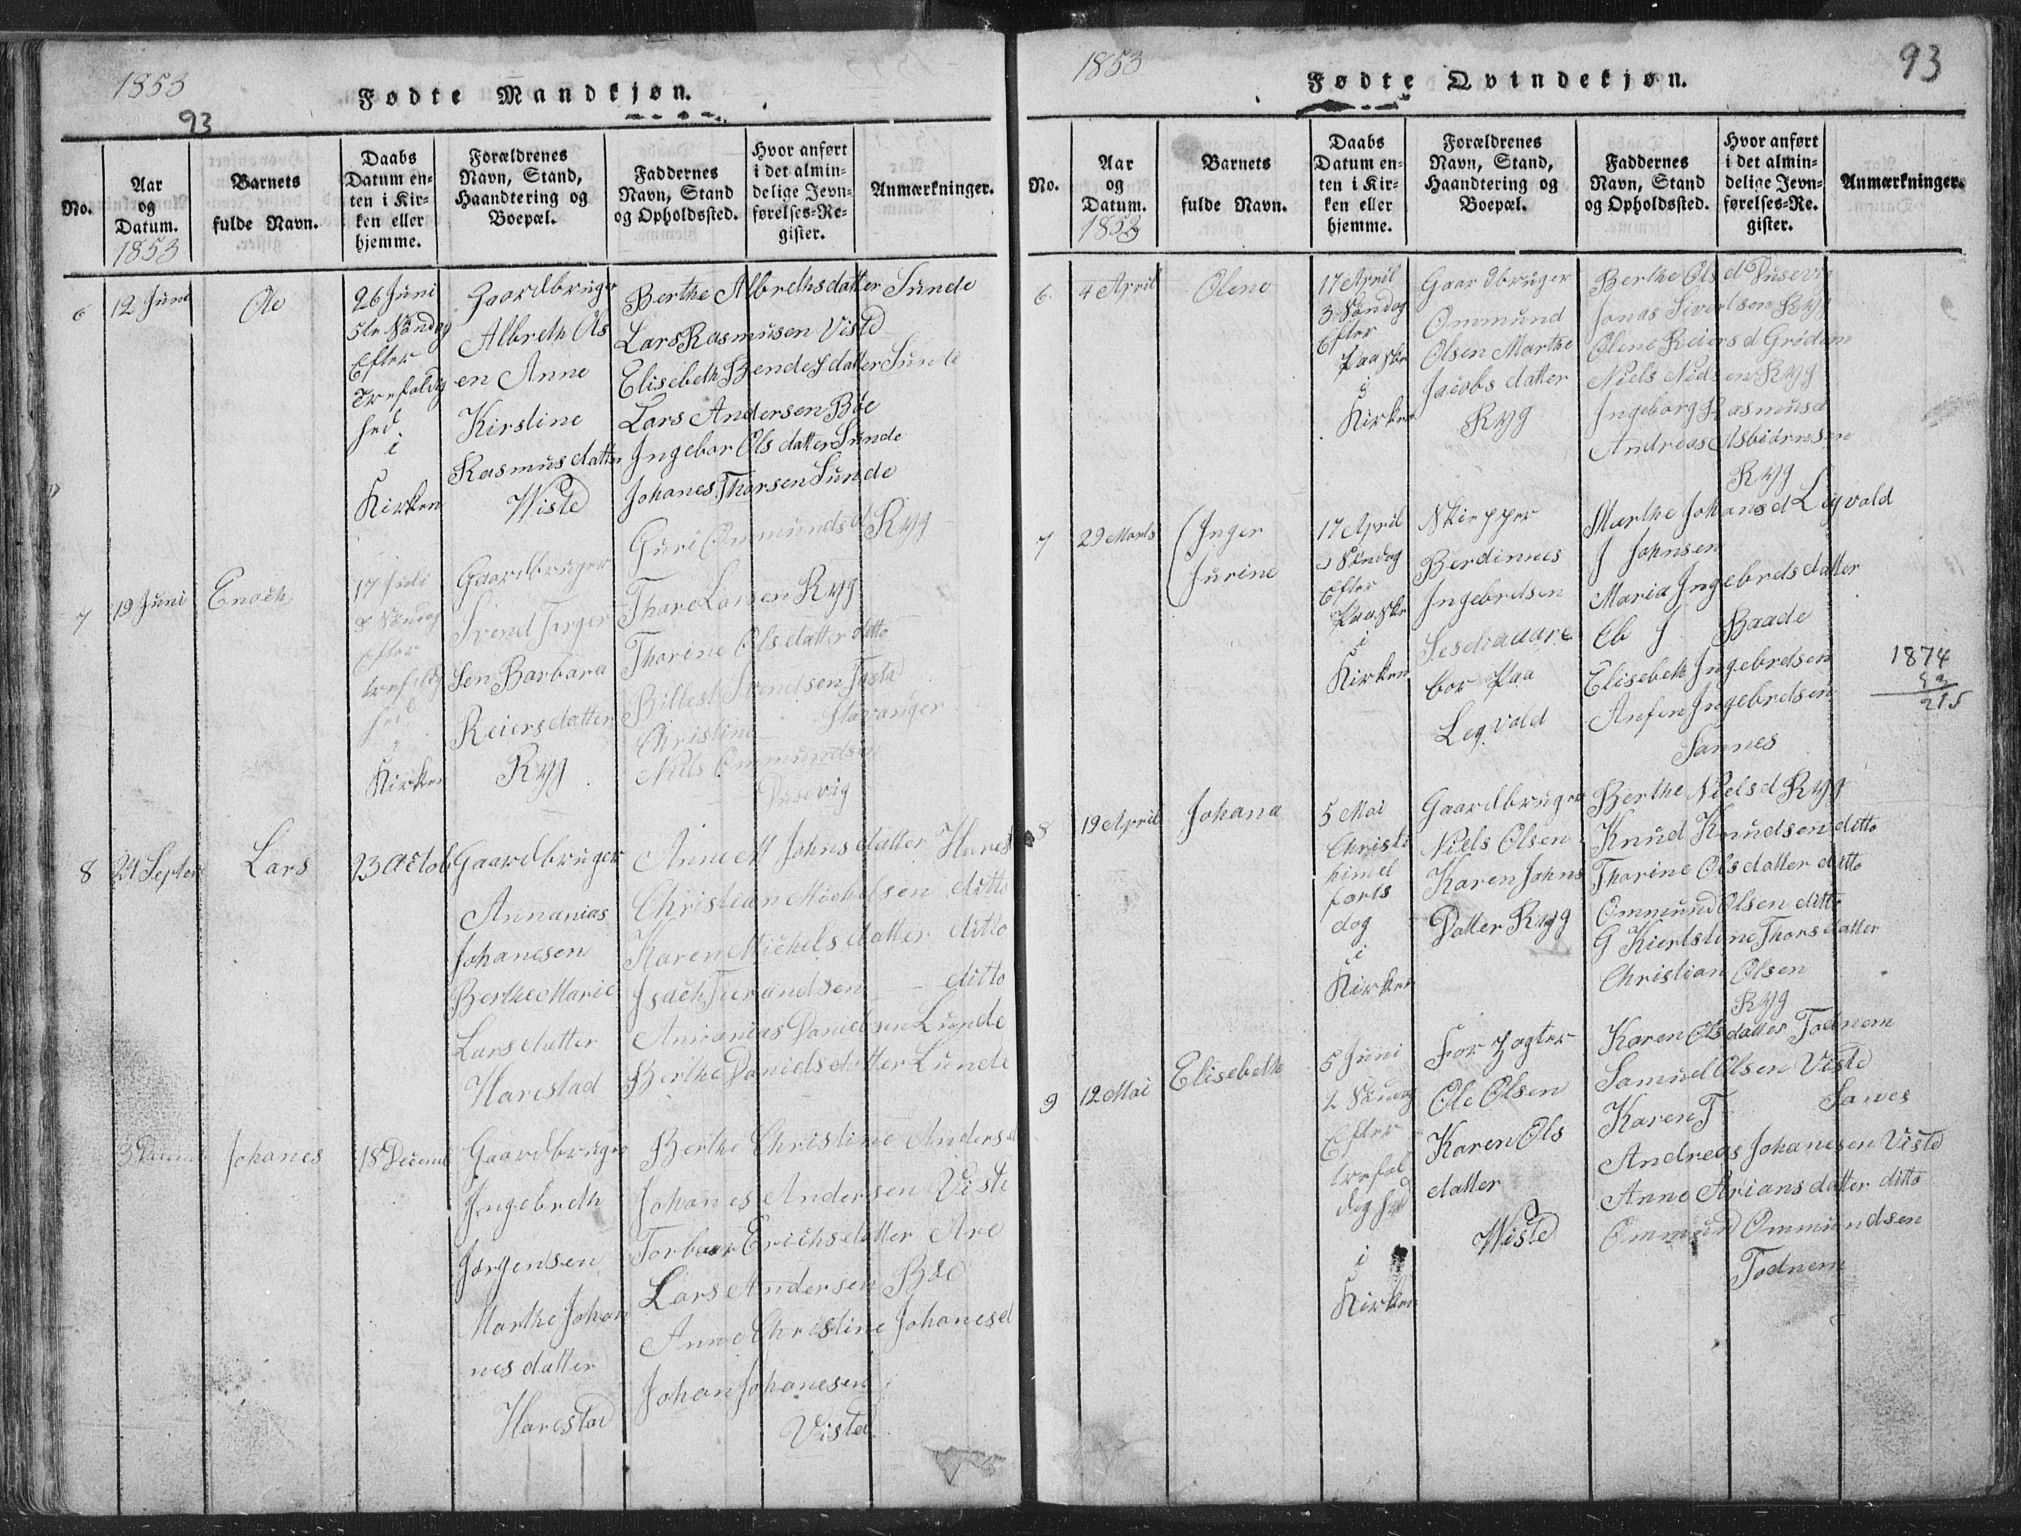 1853
Fødte Mandkjøn.
93
No.
Aar og Datum.
1853
Barnets fulde Navn.
Daabs Datum enten i Kirken eller hjemme.
Forældrenes Navn, Stand, Haandtering og Boepæl.
Faddernes Navn, Stand og Opholdssted.
Hvor anført i det almindelige Jevnførelses-Register.
Anmærkninger.
6
12 Juni
Ole
26 Juni
5te Søndag
Efter
Trefoldig
hed
i
Kirken
Gaardbruger
Albreth Ols
en Anne
Kirstine
Rasmusdatter
Wiste
Berthe Albrethsdatter Sunde
Lars Rasmusen Viste
Elisebeth Bendesdatter Sunde
Lars Andersen Bøe
Ingebor Olsdatter Sunde
Johanes Thorsen Sunde
7
19 Juni
Enoch
17 Juli
Søndag
Efter
trefoldig
hed
i
Kirken
Gaardbruger
Svend Jørger
Sen Barbara
Reiersdatter
Ryg
Guri Ommundsd Ryg
Thore Larsen Ryg
Thorine Olsdatter ditto
Svendsen
Christine Stavanger
Niels Ommundsen
Dusevig
8
24 Septem
Lars
23 Octob
Gaardbruger
Annanias
Johanesen
Berthe Marie
Larsdatter
Harestad
Anne M Johnsdatter Hares
Christian Michelsen ditto
Karen Michelsdatter ditto
Isach Tuerandsen ditto
Annanias Danielsen Lunde
Berthe Danielsdatter Lunde
3 Decemb
Johanes
18 Decemb
Gaardbruger
Ingebreth
Jørgensen
Marthe Johan
nesdatter
Harestad
Berthe Christine Andersd
Johanes Andersen Viste
Torbor Erichsdatter Are
Lars Andersen Bøe
Anne Christine Johanesd
Johan Johanesen
Viste
1853
Fødte Qvindekjøn.
93
No.
Aar og Datum.
1853
Barnets fulde Navn.
Daabs Datum enten i Kirken eller hjemme.
Forældrenes Navn, Stand, Haandtering og Boepæl.
Faddernes Navn, Stand og Opholdssted.
Hvor anført i det almindelige Jevnførelses-Register.
Anmærkninger.
6.
4 April
Olene
17 April
3 Søndag
Efter
Paaske
i
Kirken
Gaardbruger
Ommund
Olsen Marthe
Jacobsdatter
Ryg
Berthe Olsd Dusevig
Jonas Sivertsen Ryg
Olene Reiersd Grødem
Niels Nielsen Ryg
Ingeborg Rasmusd
Andreas Asbiørnsen
Ryg
7
29 Marts
Inger
Jurine
17 April
3 Søndag
Efter
Paaske
i
Kirken
Skipper
Berdinnes
Ingebretsen
bor Paa
Legvold
Marthe Johansd Legvold
J Johnsen
Maria Ingebretsdatter
Baade
Elisebeth Ingebretsen
Anfin Ingebretsen
Sannes
1874
215
8
19 April
Johana
5 Mai
Christi
himel
farts
dag
i
Kirken
Gaardbruger
Niels Olsen
Karen Johns
Datter Ryg
Berthe Nielsd Ryg
Knud Knudsen ditto
Thorine Olsdatter ditto
Ommund Olsen ditto
G Kierlstine Thorsdatter
Christian Olsen
Ryg
9
12 Mai
Elisebeth
5 Juni
2 Søndag
Efter
trefol
dighed
i
Kirken
Forpagter
Ole Olsen
Karen Ols
datter
Wiste
Karen Olsdatter Todnem
Samuel Olsen Viste
Karen T Sannes
Andreas Johanesen Viste
Anne Ariansdatter ditto
Ommund Ommundsen
Todnem